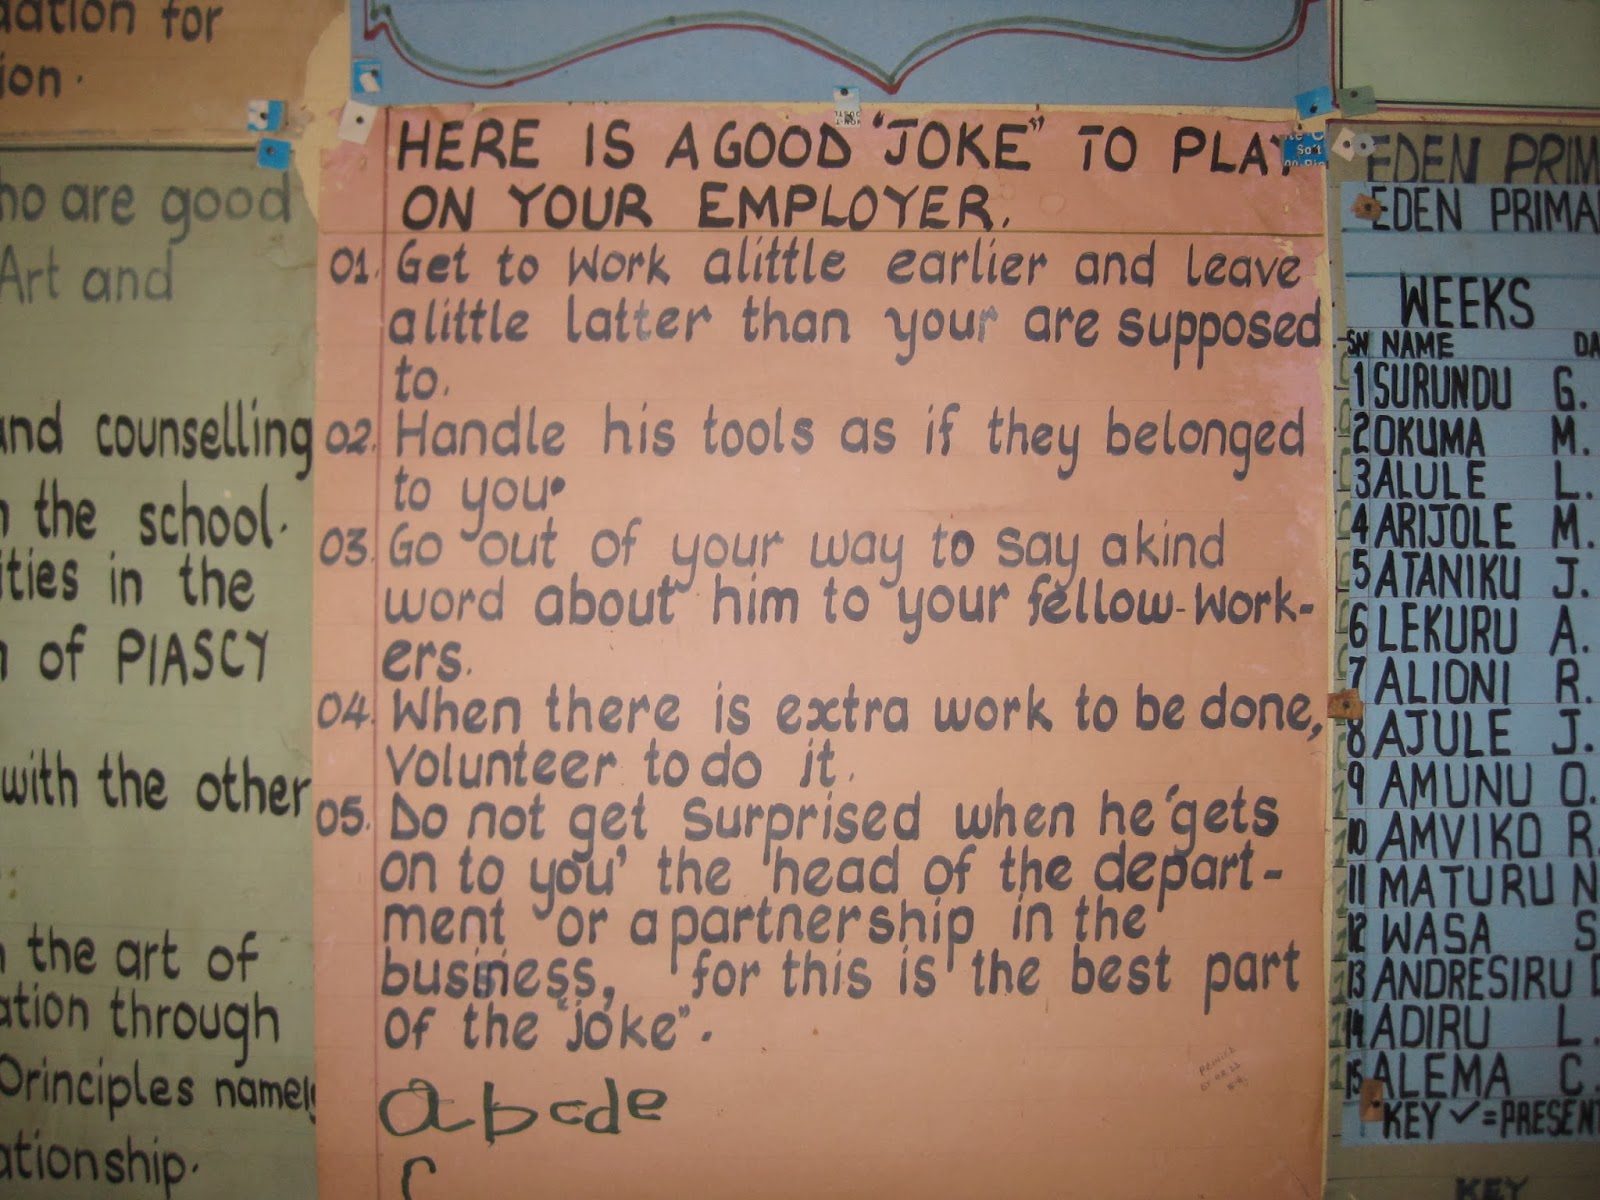 dation for
ion.
ho are good
Art and
and counselling
n the school.
ities in the
n of PIASCY
with the other
n the art of
ation through
Principles namely
ationship.
HERE IS A GOOD "JOKE" TO PLAY
ON YOUR EMPLOYER.
01. Get to Work alittle earlier and leave
alittle latter than your are supposed
to.
02. Handle his tools as if they belonged
to you.
03. Go out of your way to say akind
word about him to your fellow-work-
ers.
04. When there is extra work to be done,
volunteer to do it.
05. Do not get surprised when he 'gets
on to you' the head of the depart-
ment or a partnership in the
business, for this is the best part
of the "joke".
abcde
EDEN PRIM
EDEN PRIMA
WEEKS
SN NAME DA
1 SURUNDU G.
2 OKUMA M.
3 ALULE L.
4 ARIJOLE M.
5 ATANIKU J.
6 LEKURU A.
7 ALIONI R.
8 AJULE J.
9 AMUNU O.
10 AMVIKO R.
11 MATURU N
12 WASA S
13 ANDRESIRU D
14 ADIRU L.
15 ALEMA C.
KEY ✓=PRESENT
KEY